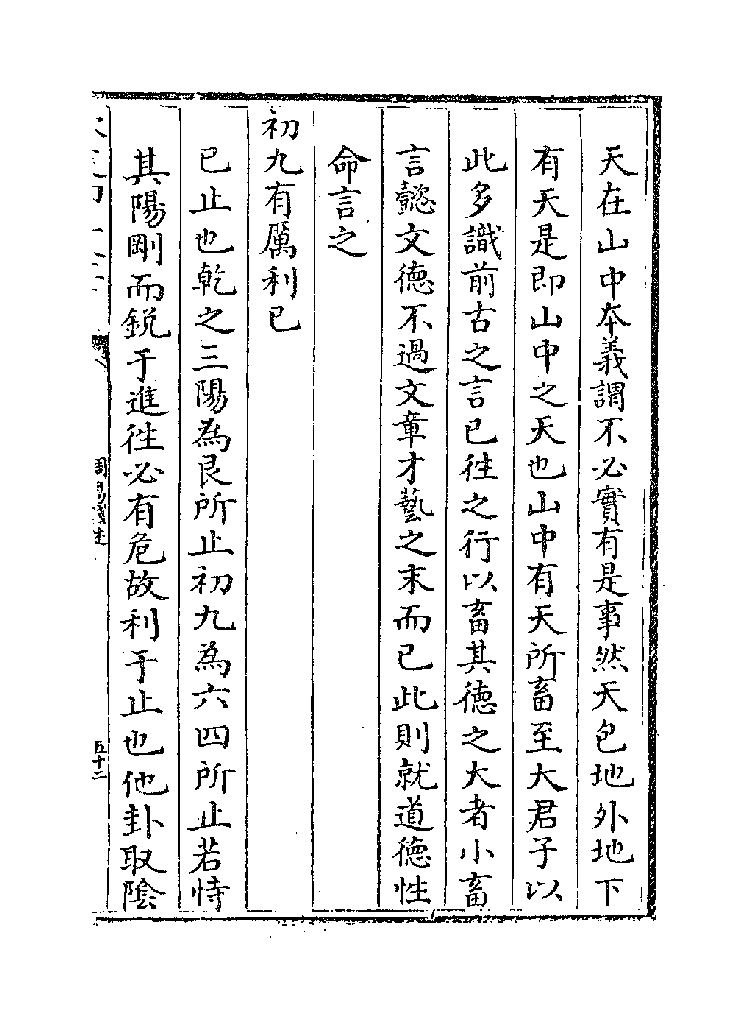 天在山中本義謂不必實有是事然天包地外地下
有天是即山中之天也山中有天所畜至大君子以
此多識前古之言已徃之行以畜其徳之大者小畜
言懿文徳不過文章才藝之末而已此則就道徳性
命言之
初九有厲利已
已止也乾之三陽為艮所止初九為六四所止若恃
其陽剛而鋭于進徃必有危故利于止也他卦取隂
五十二